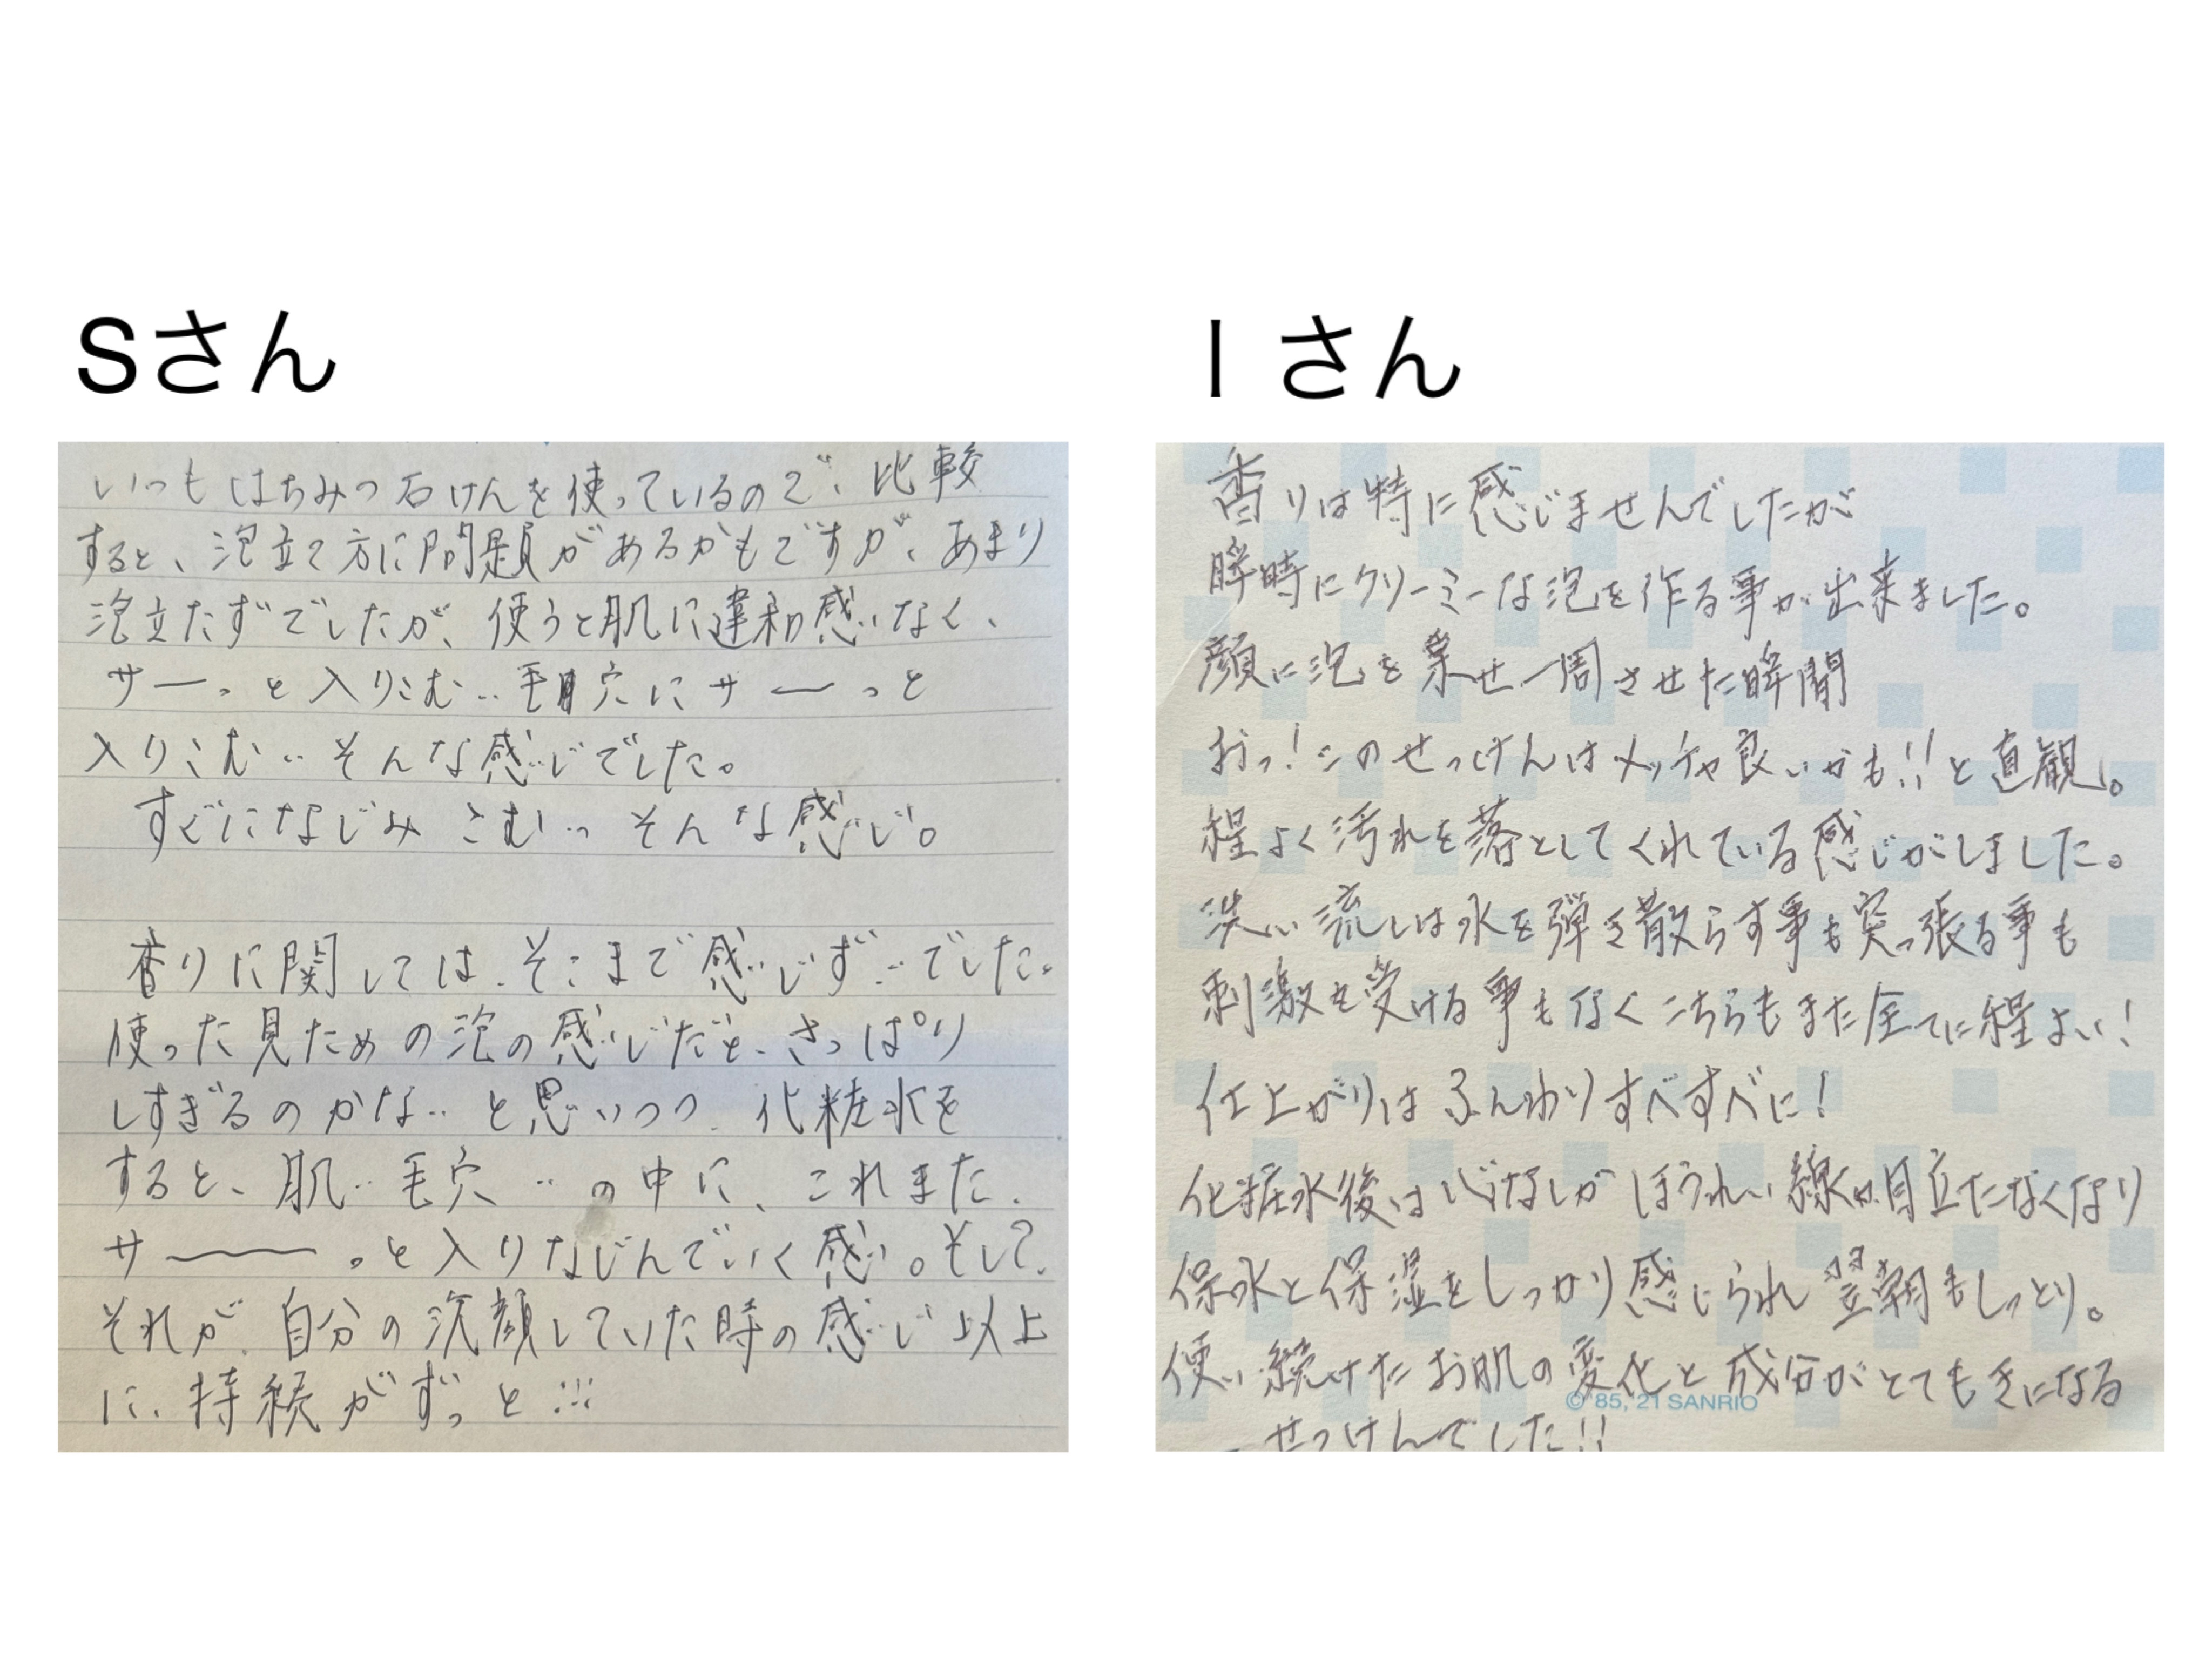 Sさん
いつもはちみつ石けんを使っているので、比較
すると、泡立て方に問題があるかもですが、あまり
泡立たずでしたが、使うと肌に違和感なく、
サーーっと入りこむ‥毛穴にサーーっと
入りこむ‥そんな感じでした。
すぐになじみこむ‥そんな感じ。
香りに関しては、そこまで感じず‥でした。
使った見ための泡の感じだと、さっぱり
しすぎるのかな‥と思いつつ、化粧水を
すると、肌‥毛穴‥の中に、これまた、
サーーーっと入りなじんでいく感じ。そして、
それが、自分の洗顔していた時の感じ以上
に、持続がずっと…
Iさん
香りは特に感じませんでしたが
瞬時にクリーミーな泡を作る事が出来ました。
顔に泡を乗せ一周させた瞬間
おっ!このせっけんはメッチャ良いかも!!と直観。
程よく汚れを落としてくれている感じがしました。
洗い流しは水を弾き散らす事も突っ張る事も
刺激を受ける事もなくこちらもまた全てに程よい!
仕上がりはふんわりすべすべに!
化粧水後は心なしかほうれい線が目立たなくなり
保水と保湿をしっかり感じられ翌朝もしっとり。
使い続けたお肌の変化と成分がとても気になる
せっけんでした!!
© '85, '21 SANRIO